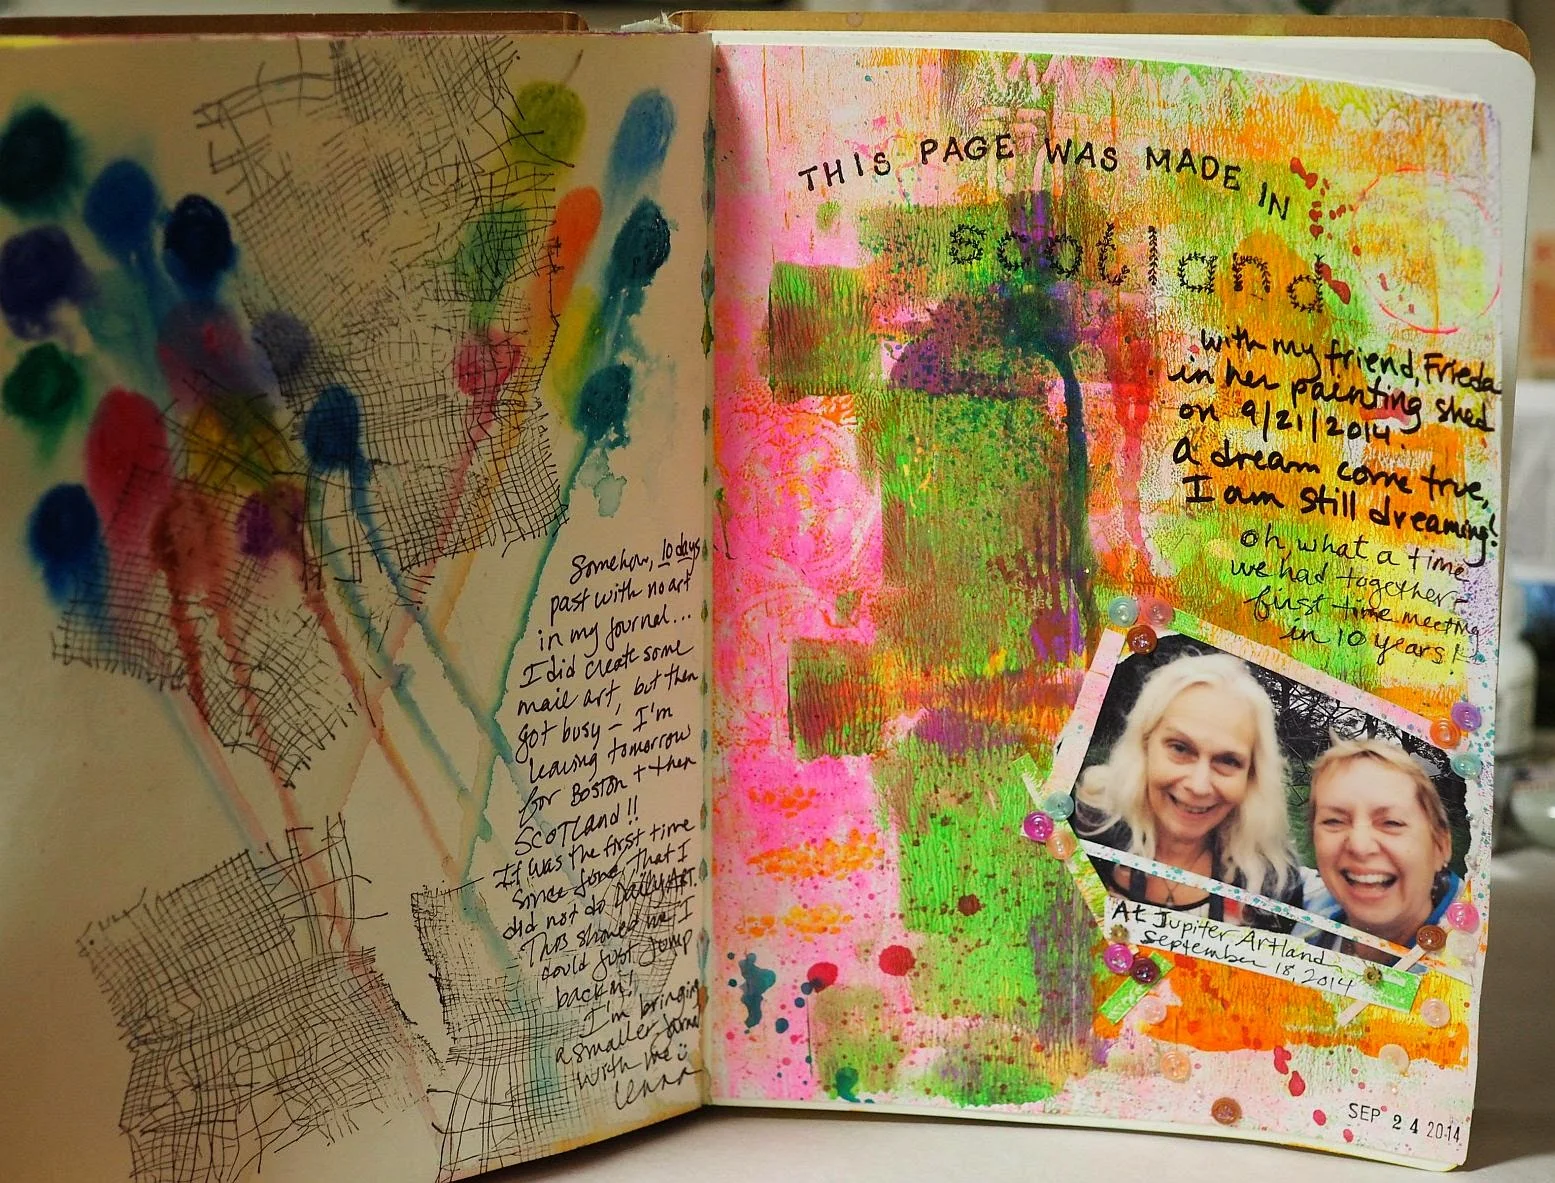 Somehow, 10 days
past with no art
in my journal...
I did create some
mail art, but then
got busy - I'm
leaving tomorrow
for Boston + then
SCOTLAND!!
It was the first time
since June that I
did not do Daily Art.
This showed me I
could just jump
back in!
I'm bringing
a smaller journal
with me
Lenna
THIS PAGE WAS MADE IN
scotland
with my friend, Frieda
in her painting shed
on 9/21/2014.
A dream come true,
I am still dreaming!
oh, what a time
we had together -
first time meeting
in 10 years!
At Jupiter Artland
September 18 2014
SEP 24 2014